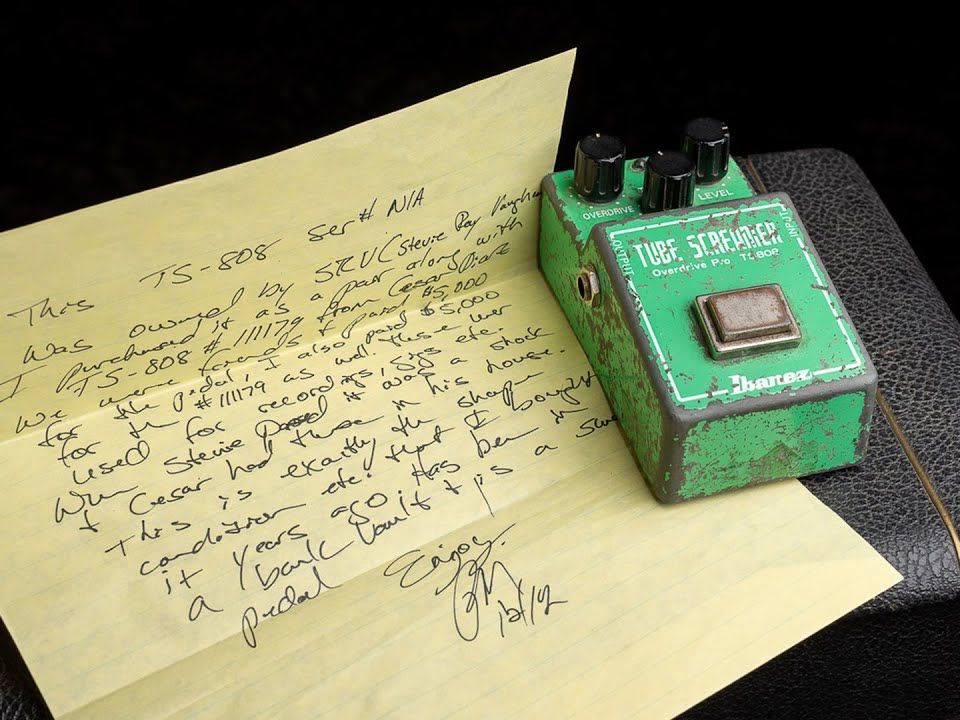 This TS-808 ser# N/A
was owned by SRV (Stevie Ray Vaughan
I purchased it as a pair along with
TS-808 # 11179 from Cesar Diaz
We were friends & paid $5,000
for the pedal, I also paid $5,000
for the #11179 as well. These were
used for recordings, gigs etc.
When Stevie it was a shock
& Cesar had these in his house.
This is exactly the shape
condition etc. that I bought
it years ago & has been in
a bank vault & is a
pedal
Enjoy
12/12
OVERDRIVE
LEVEL
OUTPUT
INPUT
TUBE SCREAMER
Overdrive Pro TS808
Ibanez